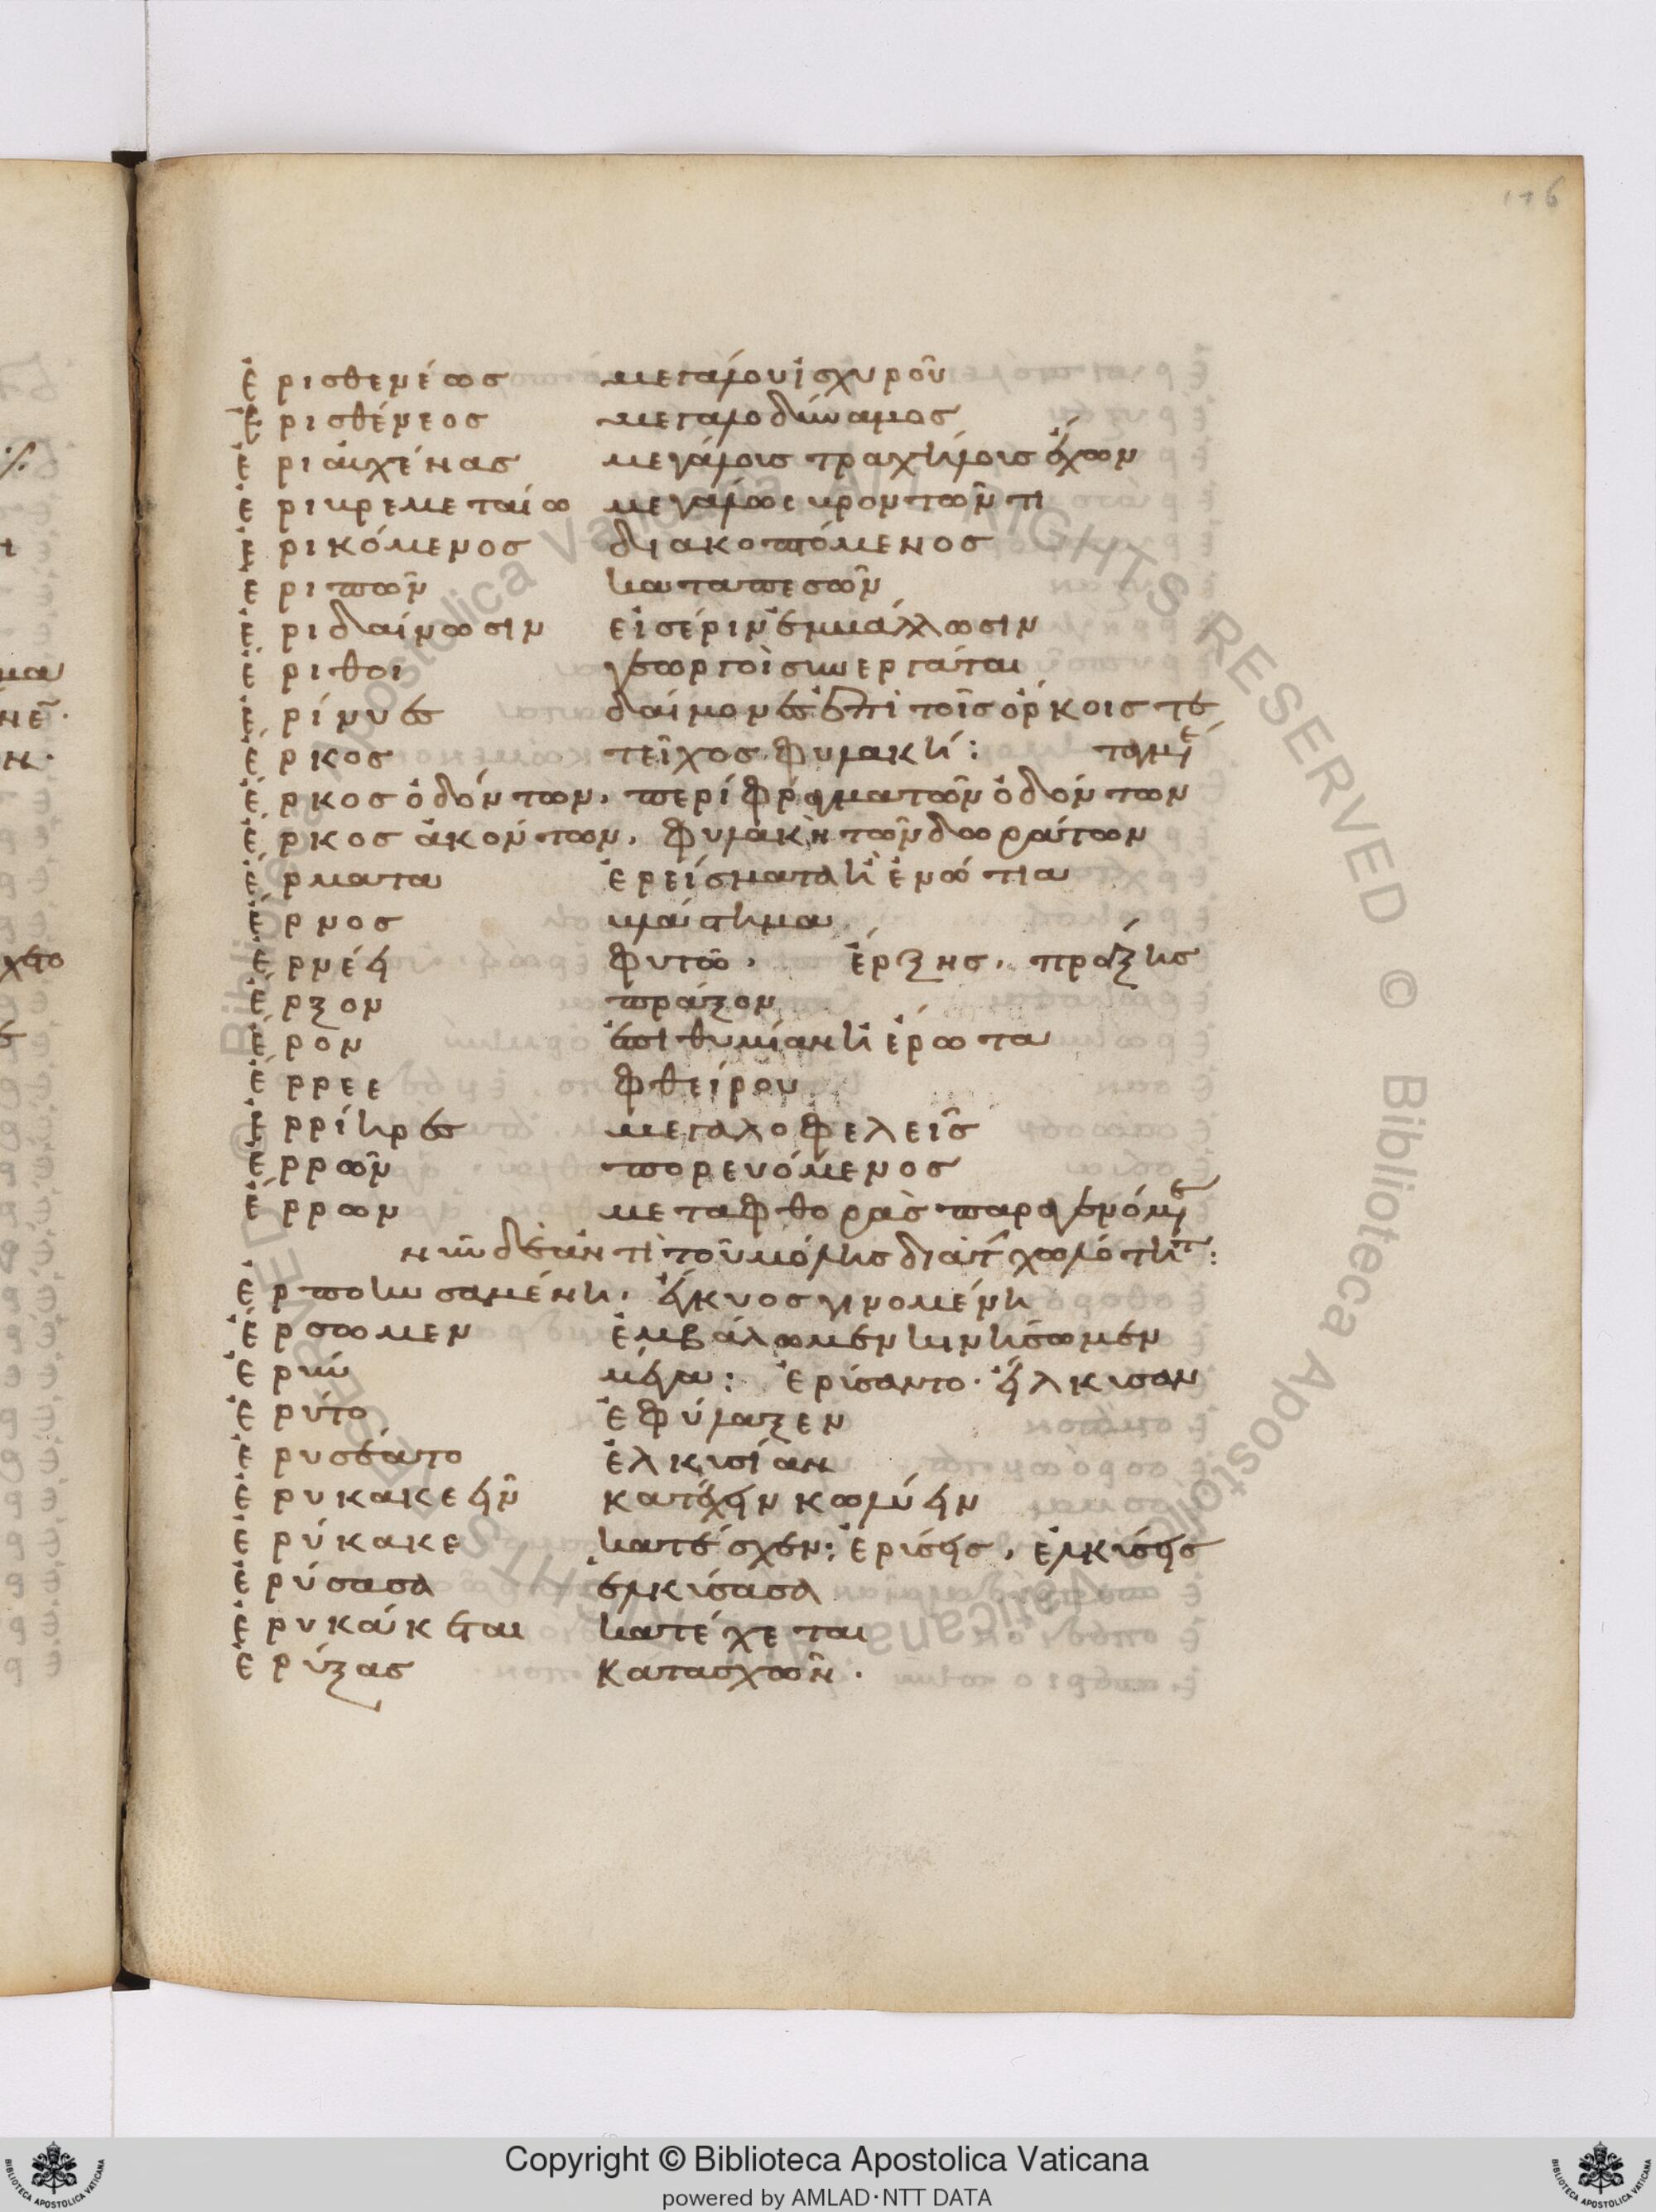 116
ἐρισθενέωσ μεγάλου ἰσχυροῦ
ἐρισθένεος μεγαλοδύναμος
ἐριαύχενας μεγάλοις τραχήλοις ἔχων
ἐρικρεμεταίω μεγάλως κροντῶντι
ἐρικόμενος διακοπτόμενος
ἐριπῶν καταπεσῶν
ἐριδαίνωσιν εἰς ἔριν ἐμμάλλωσιν
ἔριθοι γεωργοὶ συνεργάται
ἐρίνυες δαίμονες ἐπὶ τοῖς ὅρκοις τε
ἕρκος τεῖχος φυλακή:
ἕρκος ὀδόντων, περίφραγμα τῶν ὀδόντων
ἕρκος ἀκόντων, φυλακὴ τῶν δωράτων
ἕρματα ἐρείσματα ἢ ἐνώτια
ἔρνος κλάστημα
ἔρνέει φυτῶ. ἔρξης, πράξης
ἔρξον πράξον
ἔρον ἐπιθυμίαν ἢ ἔρωτα
ἔρρεε φθείρου
ἐρρίηρες μεγαλοφελεῖς
ἐρρῶν πορευόμενος
ἔρρων μετὰ φθορᾶς παραγενόμε
νῦν δὲ ἀντὶ τοῦ μόλις διὰ τ χωλότητ:
ἑρποιυσαμένη, ἕλκυος γινομένη
ἔρσωμεν ἐμβάλωμεν κινήσωμεν
ἔρυν μέγα: ἐρύσαντο. εἵλκυσαν
ἔρυτο ἐφύλαξεν
ἐρυσέατο ἑλκυσίαν
ἐρυκακεεῖν κατέχειν κωλύειν
ἐρύκακε κατέσχεν: ἐρύσεις, ἑλκύσεις
ἐρύσασα ἑλκύσασα
ἐρυκάκεται κατέχεται
ἐρύξας κατασχῶν.
Copyright © Biblioteca Apostolica Vaticana
powered by AMLAD·NTT DATA